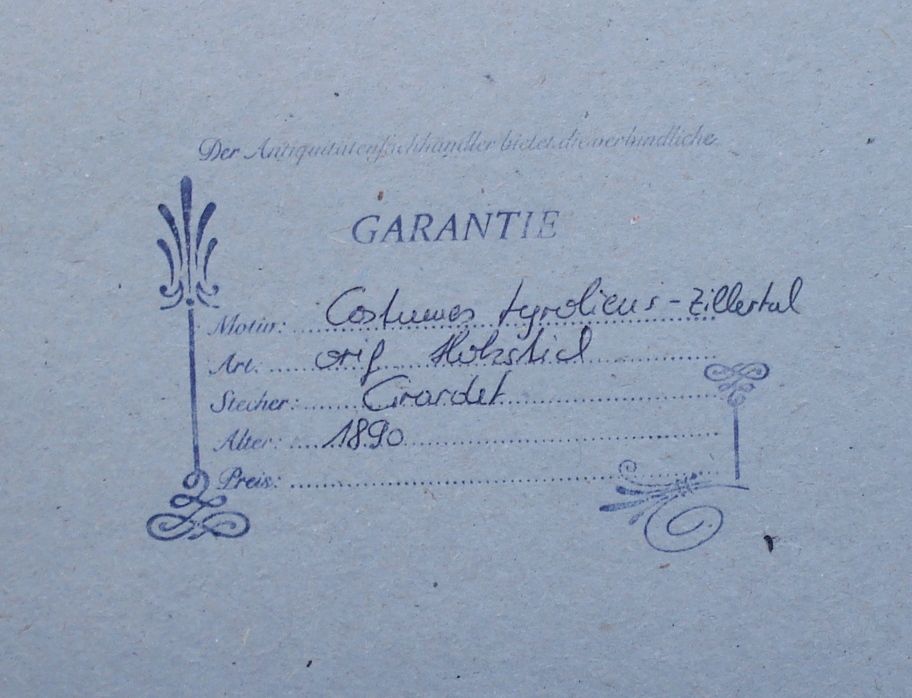 Der Antiquitätenfachhändler bietet die verbindliche
GARANTIE
Motiv: Costumes tyroliens - Zillertal
Art: orig Holzstich
Stecher: Girardet
Alter: 1890
Preis: